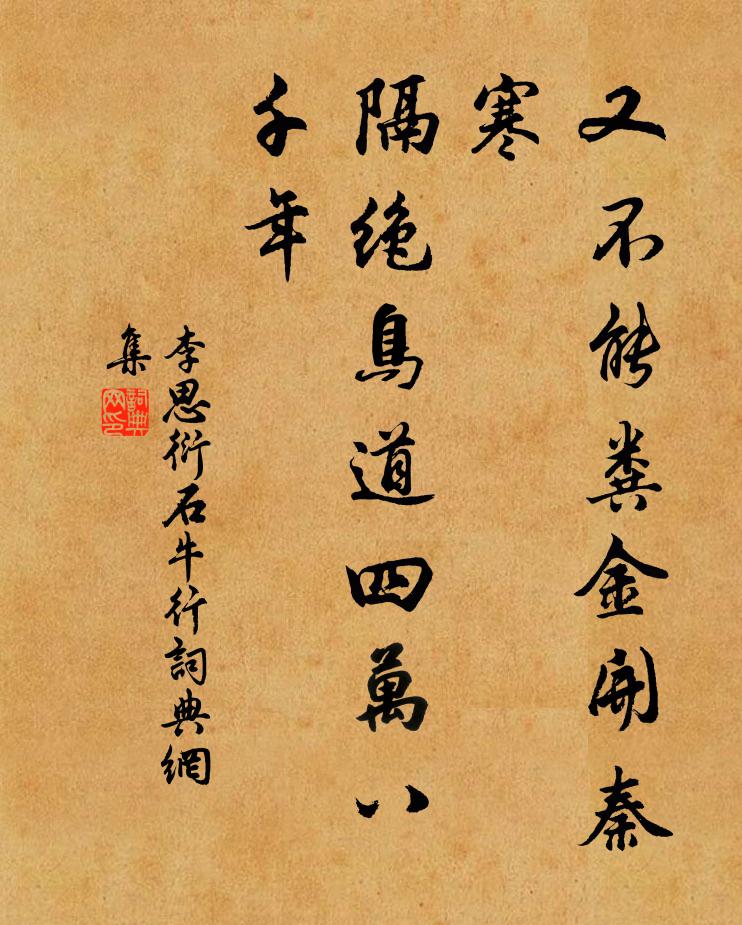 又不能糞金開秦
寒
隔絶鳥道四萬八
千年
李思衍石牛行詞典網
集
詞典
网印